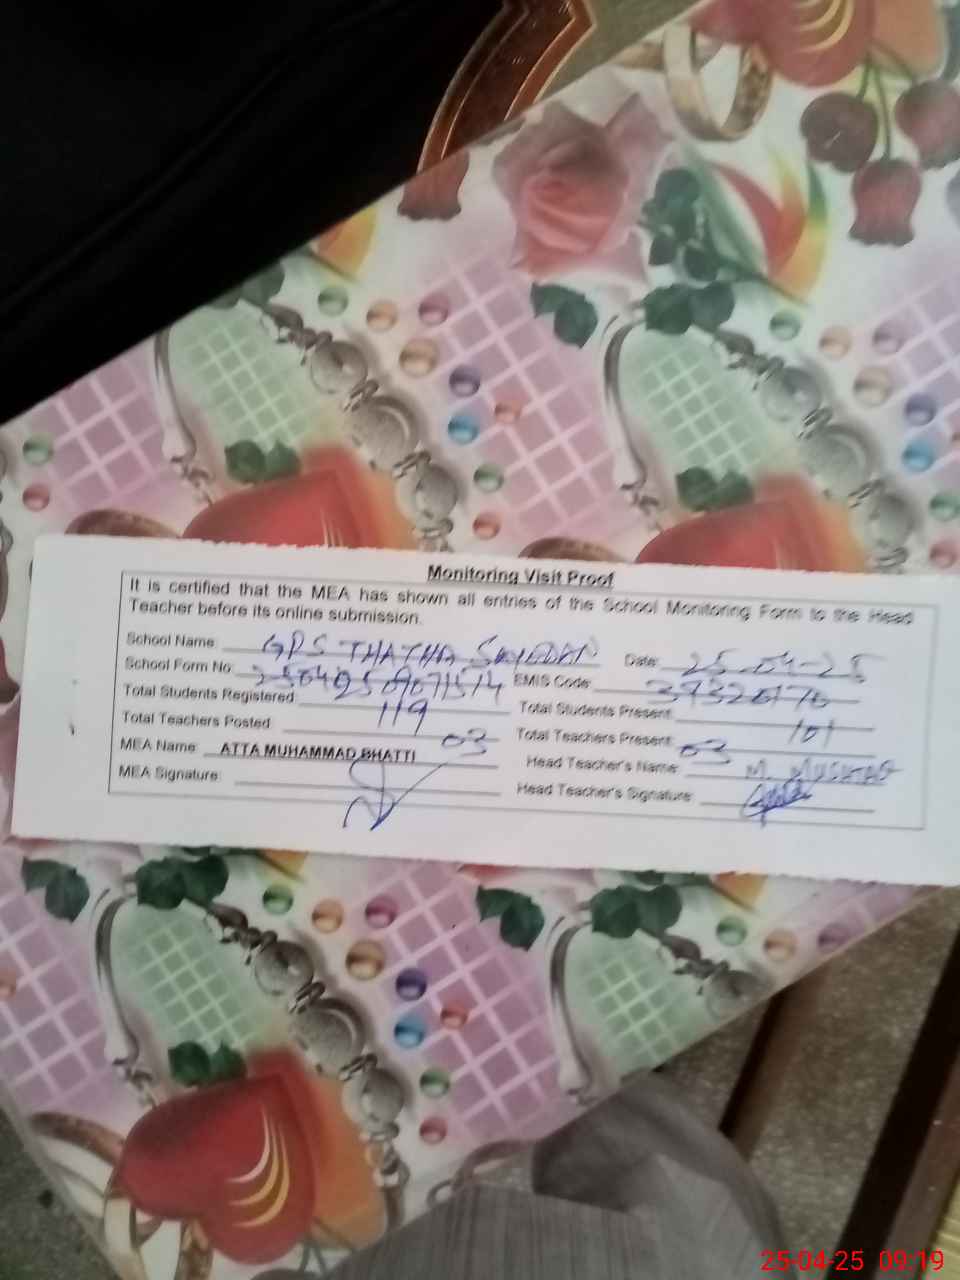 Monitoring Visit Proof
It is certified that the MEA has shown all entries of the School Monitoring Form to the Head
Teacher before its online submission.
School Name: GPS THATHA SAYEDAN Date: 25-04-25
School Form No: EMIS Code: 37320170
Total Students Registered: 119 Total Students Present: 101
Total Teachers Posted: 03 Total Teachers Present: 03
MEA Name: ATTA MUHAMMAD BHATTI Head Teacher's Name: M. MUSHTAQ
MEA Signature: Head Teacher's Signature:
25-04-25 09:19